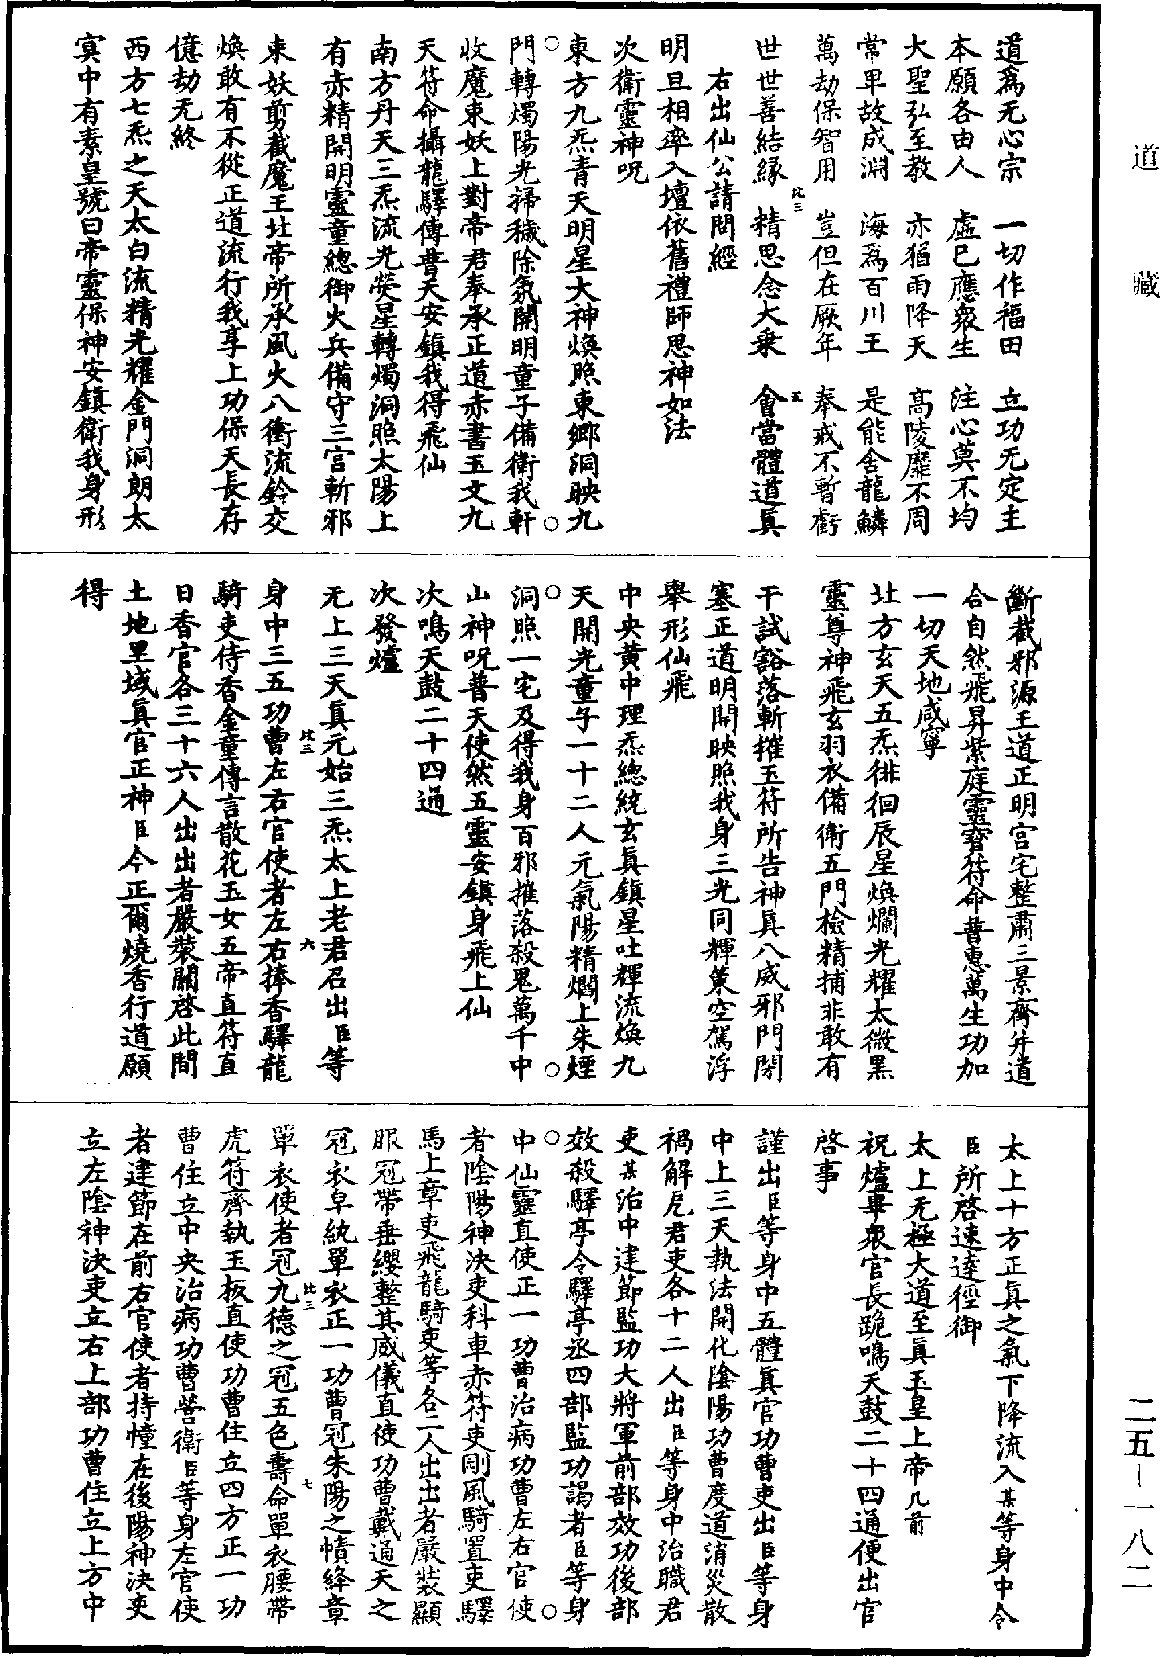 道藏
二五－一八二
道爲无心宗　一切作福田　立功无定主
本願各由人　虛已應衆生　注心莫不均
大聖弘至教　亦猶雨降天　高陵靡不周
常卑故成淵　海爲百川王　是能舍龍鱗
萬劫保智用　豈但在厥年　奉戒不暫虧
世世善結緣　精思念大乘　會當體道眞
比三　五
右出仙公請問經
明旦相率入壇依舊禮師思神如法
次衛靈神呪
東方九炁青天明星大神煥照東鄉洞映九
門轉燭陽光掃穢除氛開明童子備衛我軒
收魔束妖上對帝君奉承正道赤書玉文九
天符命攝龍驛傳普天安鎮我得飛仙
南方丹天三炁流光熒星轉燭洞照太陽上
有赤精開明靈童總御火兵備守三宮斬邪
束妖剪截魔王北帝所承風火八衝流鈴交
煥敢有不從正道流行我享上功保天長存
億劫无終
西方七炁之天太白流精光耀金門洞朗太
寞中有素皇號曰帝靈保神安鎮衛我身形
斷截邪源王道正明宮宅整肅三景齊并道
合自然飛昇紫庭靈寶符命普惠萬生功加
一切天地咸寧
北方玄天五炁徘徊辰星煥爛光耀太微黑
靈尊神飛玄羽衣備衛五門檢精捕非敢有
干試豁落斬摧玉符所告神眞八威邪門閉
塞正道明開映照我身三光同輝策空駕浮
舉形仙飛
中央黃中理炁總統玄眞鎮星吐輝流煥九
天開光童子一十二人元氣陽精爛上朱煙
洞照一宅及得我身百邪摧落殺鬼萬千中
山神呪普天使然五靈安鎮身飛上仙
次鳴天鼓二十四通
次發爐
无上三天眞元始三炁太上老君召出臣等
比三　六
身中三五功曹左右官使者左右捧香驛龍
騎吏侍香金童傳言散花玉女五帝直符直
日香官各三十六人出出者嚴裝關啓此間
土地里域眞官正神臣今正爾燒香行道願
得
太上十方正眞之氣下降流入某等身中令
臣所啓速達徑御
太上无極大道至眞玉皇上帝几前
祝爐畢衆官長跪鳴天鼓二十四通便出官
啓事
謹出臣等身中五體眞官功曹吏出臣等身
中上三天執法開化陰陽功曹度道消災散
禍解厄君吏各十二人出臣等身中治職君
吏某治中建節監功大將軍前部效功後部
效殺驛亭令驛亭丞四部監功謁者臣等身
中仙靈直使正一功曹治病功曹左右官使
者陰陽神決吏科車赤符吏剛風騎置吏驛
馬上章吏飛龍騎吏等各二人出出者嚴裝顯
服冠帶垂纓整其威儀直使功曹戴通天之
冠衣皁紈單衣正一功曹冠朱陽之幘絳章
比三　七
單衣使者冠九德之冠五色壽命單衣腰帶
虎符齊執玉板直使功曹住立四方正一功
曹住立中央治病功曹營衛臣等身左官使
者建節在前右官使者持幢在後陽神決吏
立左陰神決吏立右上部功曹住立上方中